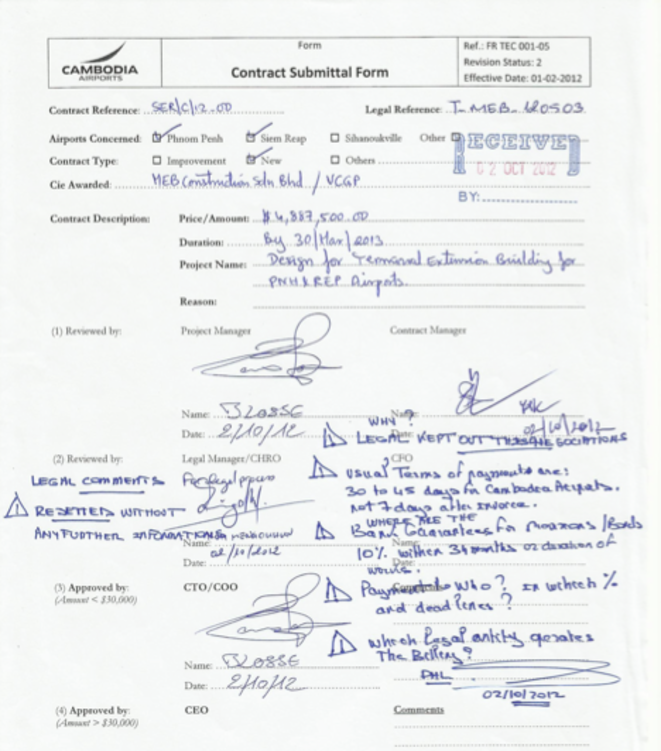 CAMBODIA
AIRPORTS
Form
Contract Submittal Form
Ref.: FR TEC 001-05
Revision Status: 2
Effective Date: 01-02-2012
Contract Reference: SER/C/12.00 Legal Reference: T-MEB-120503
Airports Concerned: Phnom Penh Siem Reap Sihanoukville Other
RECEIVED
02 OCT 2012
BY:
Contract Type: Improvement New Others
Cie Awarded: MEB Construction Sdn Bhd / VCGP
Contract Description: Price/Amount: $4,887,500.00
Duration: By 30/Mar/2013
Project Name: Design for Terminal Extension Building for
PNH & REP Airports.
Reason:
(1) Reviewed by: Project Manager Contract Manager
Name: BLOSSE Name:
Date: 2/10/12 Date: 02/10/2012
WHY?
LEGAL KEPT OUT
(2) Reviewed by: Legal Manager/CHRO CFO
LEGAL COMMENTS
WITHOUT
ANY FURTHER
Name:
Date: 02/10/2012
Usual Terms of payments are:
30 to 45 days for Cambodia Airports.
not 7 days after invoice.
WHERE ARE THE
Bank Guarantees for /Bonds
10% within months or duration of
works.
Name:
Date:
(3) Approved by: CTO/COO
(Amount < $30,000)
Payment to who? in which %
and dead lines?
which legal entity operates
The Billing?
Name: BLOSSE
Date: 2/10/12
02/10/2012
(4) Approved by: CEO Comments
(Amount > $30,000)